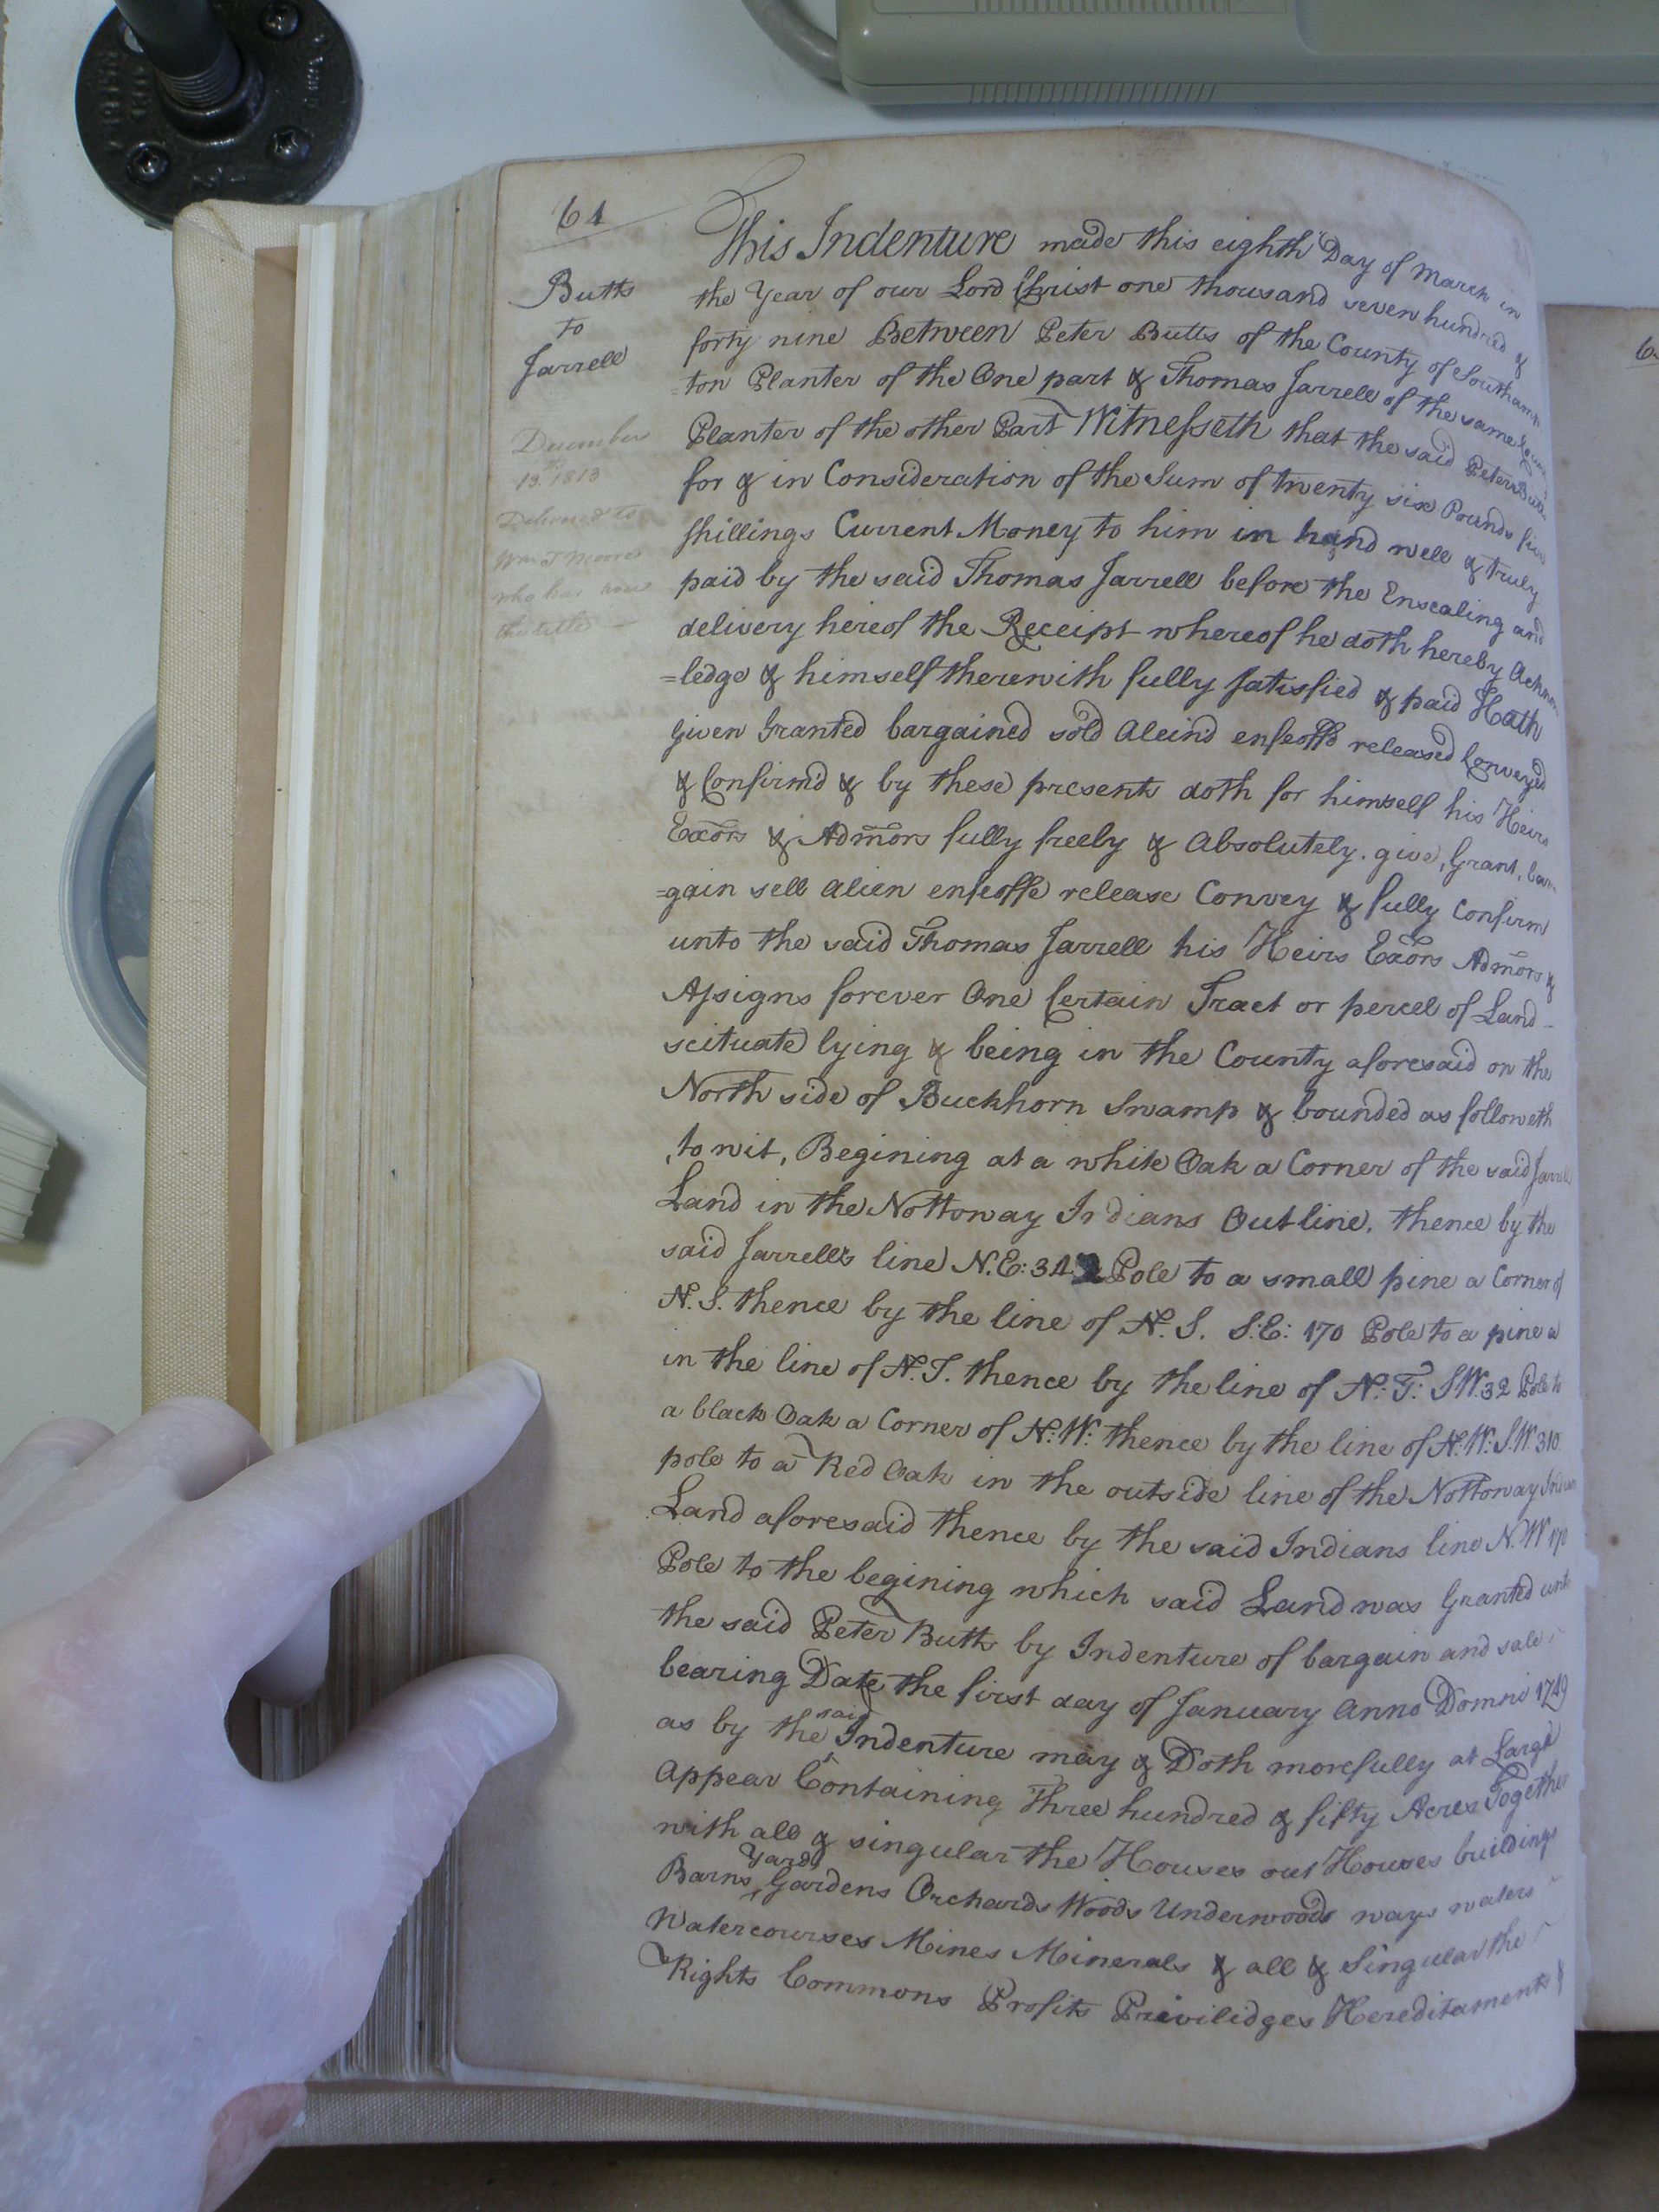 61
Butts
to
Jarrell
December
19th 1813
Delivered to
Wm T Moore
who has now
the title
This Indenture made this eighth Day of March in
the Year of our Lord Christ one thousand seven hundred &
forty nine Between Peter Butts of the County of Southamp
ton Planter of the One part & Thomas Jarrell of the same
Planter of the other Part Witnesseth that the said Peter Butts
for & in Consideration of the Sum of twenty six Pounds five
shillings Current Money to him in hand well & truly
paid by the said Thomas Jarrell before the Ensealing and
delivery hereof the Receipt whereof he doth hereby Acknow
=ledge & himself therewith fully satisfied & paid Hath
Given Granted bargained sold Aleind enfeoffd released Conveyed
& Confirmd & by these presents doth for himself his Heirs
Exors & Admors fully freely & Absolutely. give, Grant, bar
=gain sell Alien enfeoffe release Convey & fully Confirm
unto the said Thomas Jarrell his Heirs Exors Admors &
Assigns forever One Certain Tract or percel of Land
scituate lying & being in the County aforesaid on the
North side of Buckhorn Swamp & bounded as followeth
to wit, Begining at a white Oak a Corner of the said Jarrells
Land in the Nottoway Indians Outline, thence by the
said Jarrells line N.E: 342 Pole to a small pine a Corner of
N. S. thence by the line of N. S. S:E: 170 Pole to a pine a
in the line of N. T. thence by the line of N: T: SW. 32 Pole to
a black Oak a Corner of N: W: thence by the line of N: W: S.W 310
pole to a Red Oak in the outside line of the Nottoway Indian
Land aforesaid thence by the said Indians line N. W 170
Pole to the begining which said Land was Granted unto
the said Peter Butts by Indenture of bargain and sale
bearing Date the first day of January Anno Domni 1749
as by the said Indenture may & Doth morefully at Large
Appear Containing Three hundred & fifty Acres Together
with all & singular the Houses out Houses buildings
Barns Yards Gardens Orchards Woods Underwoods ways waters
Watercourses Mines Minerals & all & Singular the
Rights Commons Profits Previlidges Hereditaments